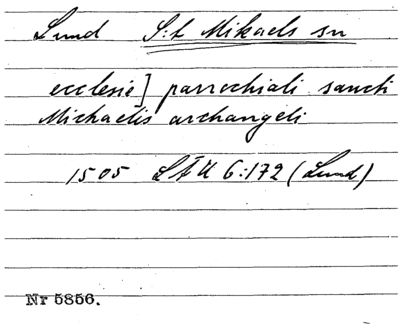 Lund S:t Mikaels sn
ecclesie] parrochiali sancti
Michaelis archangeli
1505 LÄU 6:172 (Lund)
Nr 5856.